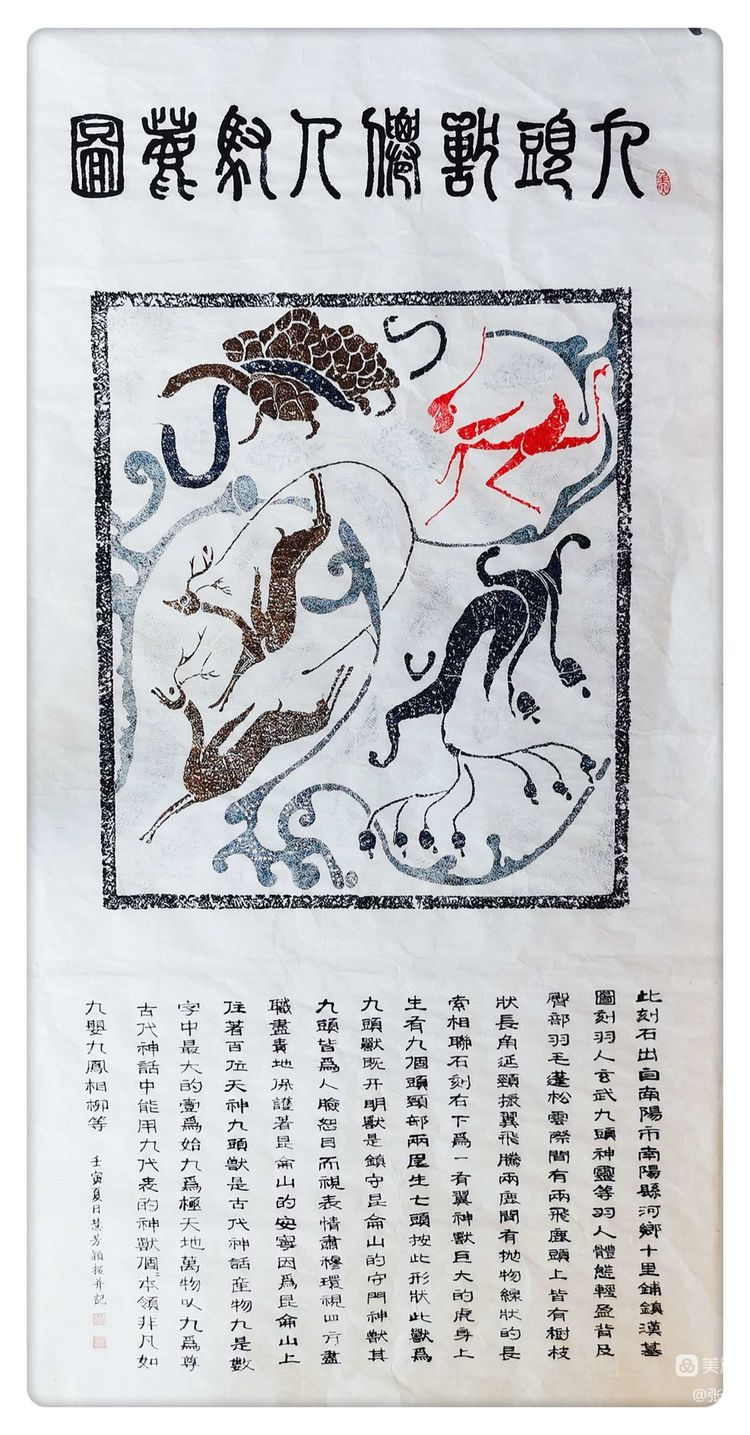 九頭獸僊人馭鹿圖
此刻石出自南陽市南陽縣河鄉十里鋪鎮漢墓
圖刻羽人玄武九頭神靈等羽人體態輕盈背及
臀部羽毛蓬松雲際間有兩飛鹿頭上皆有樹枝
狀長角延頸振翼飛騰兩鹿間有拋物線狀的長
索相聯石刻右下爲一有翼神獸巨大的虎身上
生有九個頭頸部兩尾生七頭按此形狀此獸爲
九頭獸既开明獸是鎮守昆侖山的守門神獸其
九頭皆爲人臉怒目而視表情肅穆環視四方盡
職盡責地保護著昆侖山的安寧因爲昆侖山上
住著百位天神九頭獸是古代神話產物九是數
字中最大的壹爲始九爲極天地萬物以九爲尊
古代神話中能用九代表的神獸個個本領非凡如
九嬰九鳳相柳等 壬寅夏日慧芳穎拓并記
美
@张